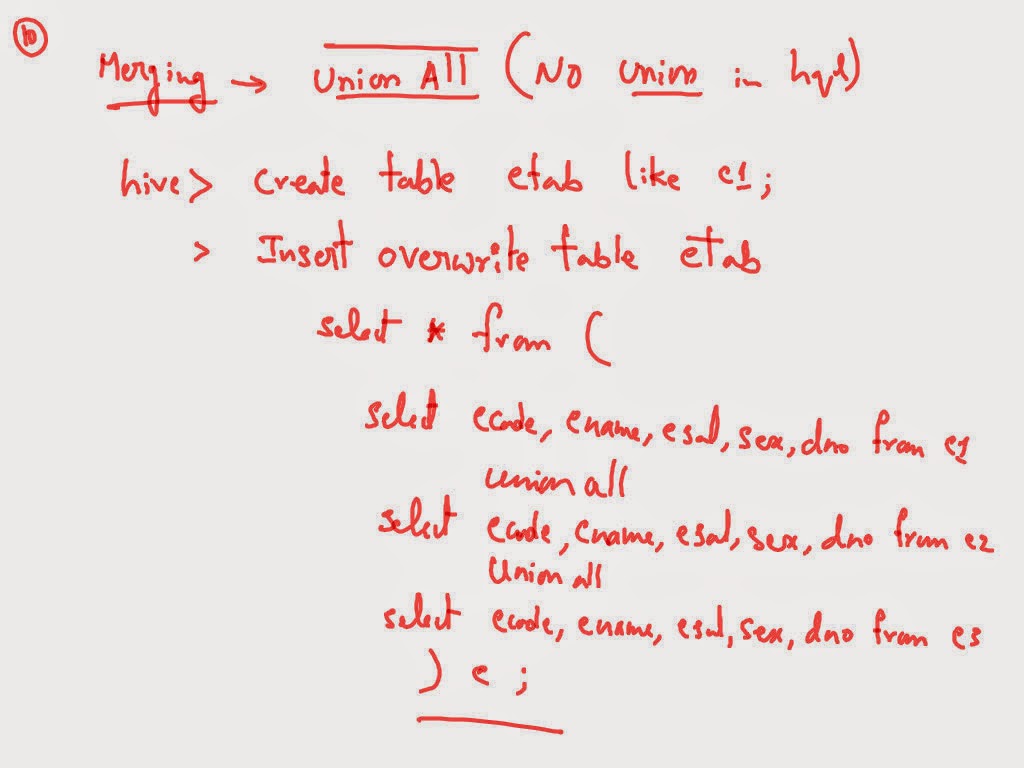 10
Merging → Union All (No Union in hql)
hive> Create table etab like e1;
> Insert overwrite table etab
select * from (
select ecode, ename, esal, sex, dno from e1
union all
select ecode, ename, esal, sex, dno from e2
Union all
select ecode, ename, esal, sex, dno from e3
) e ;